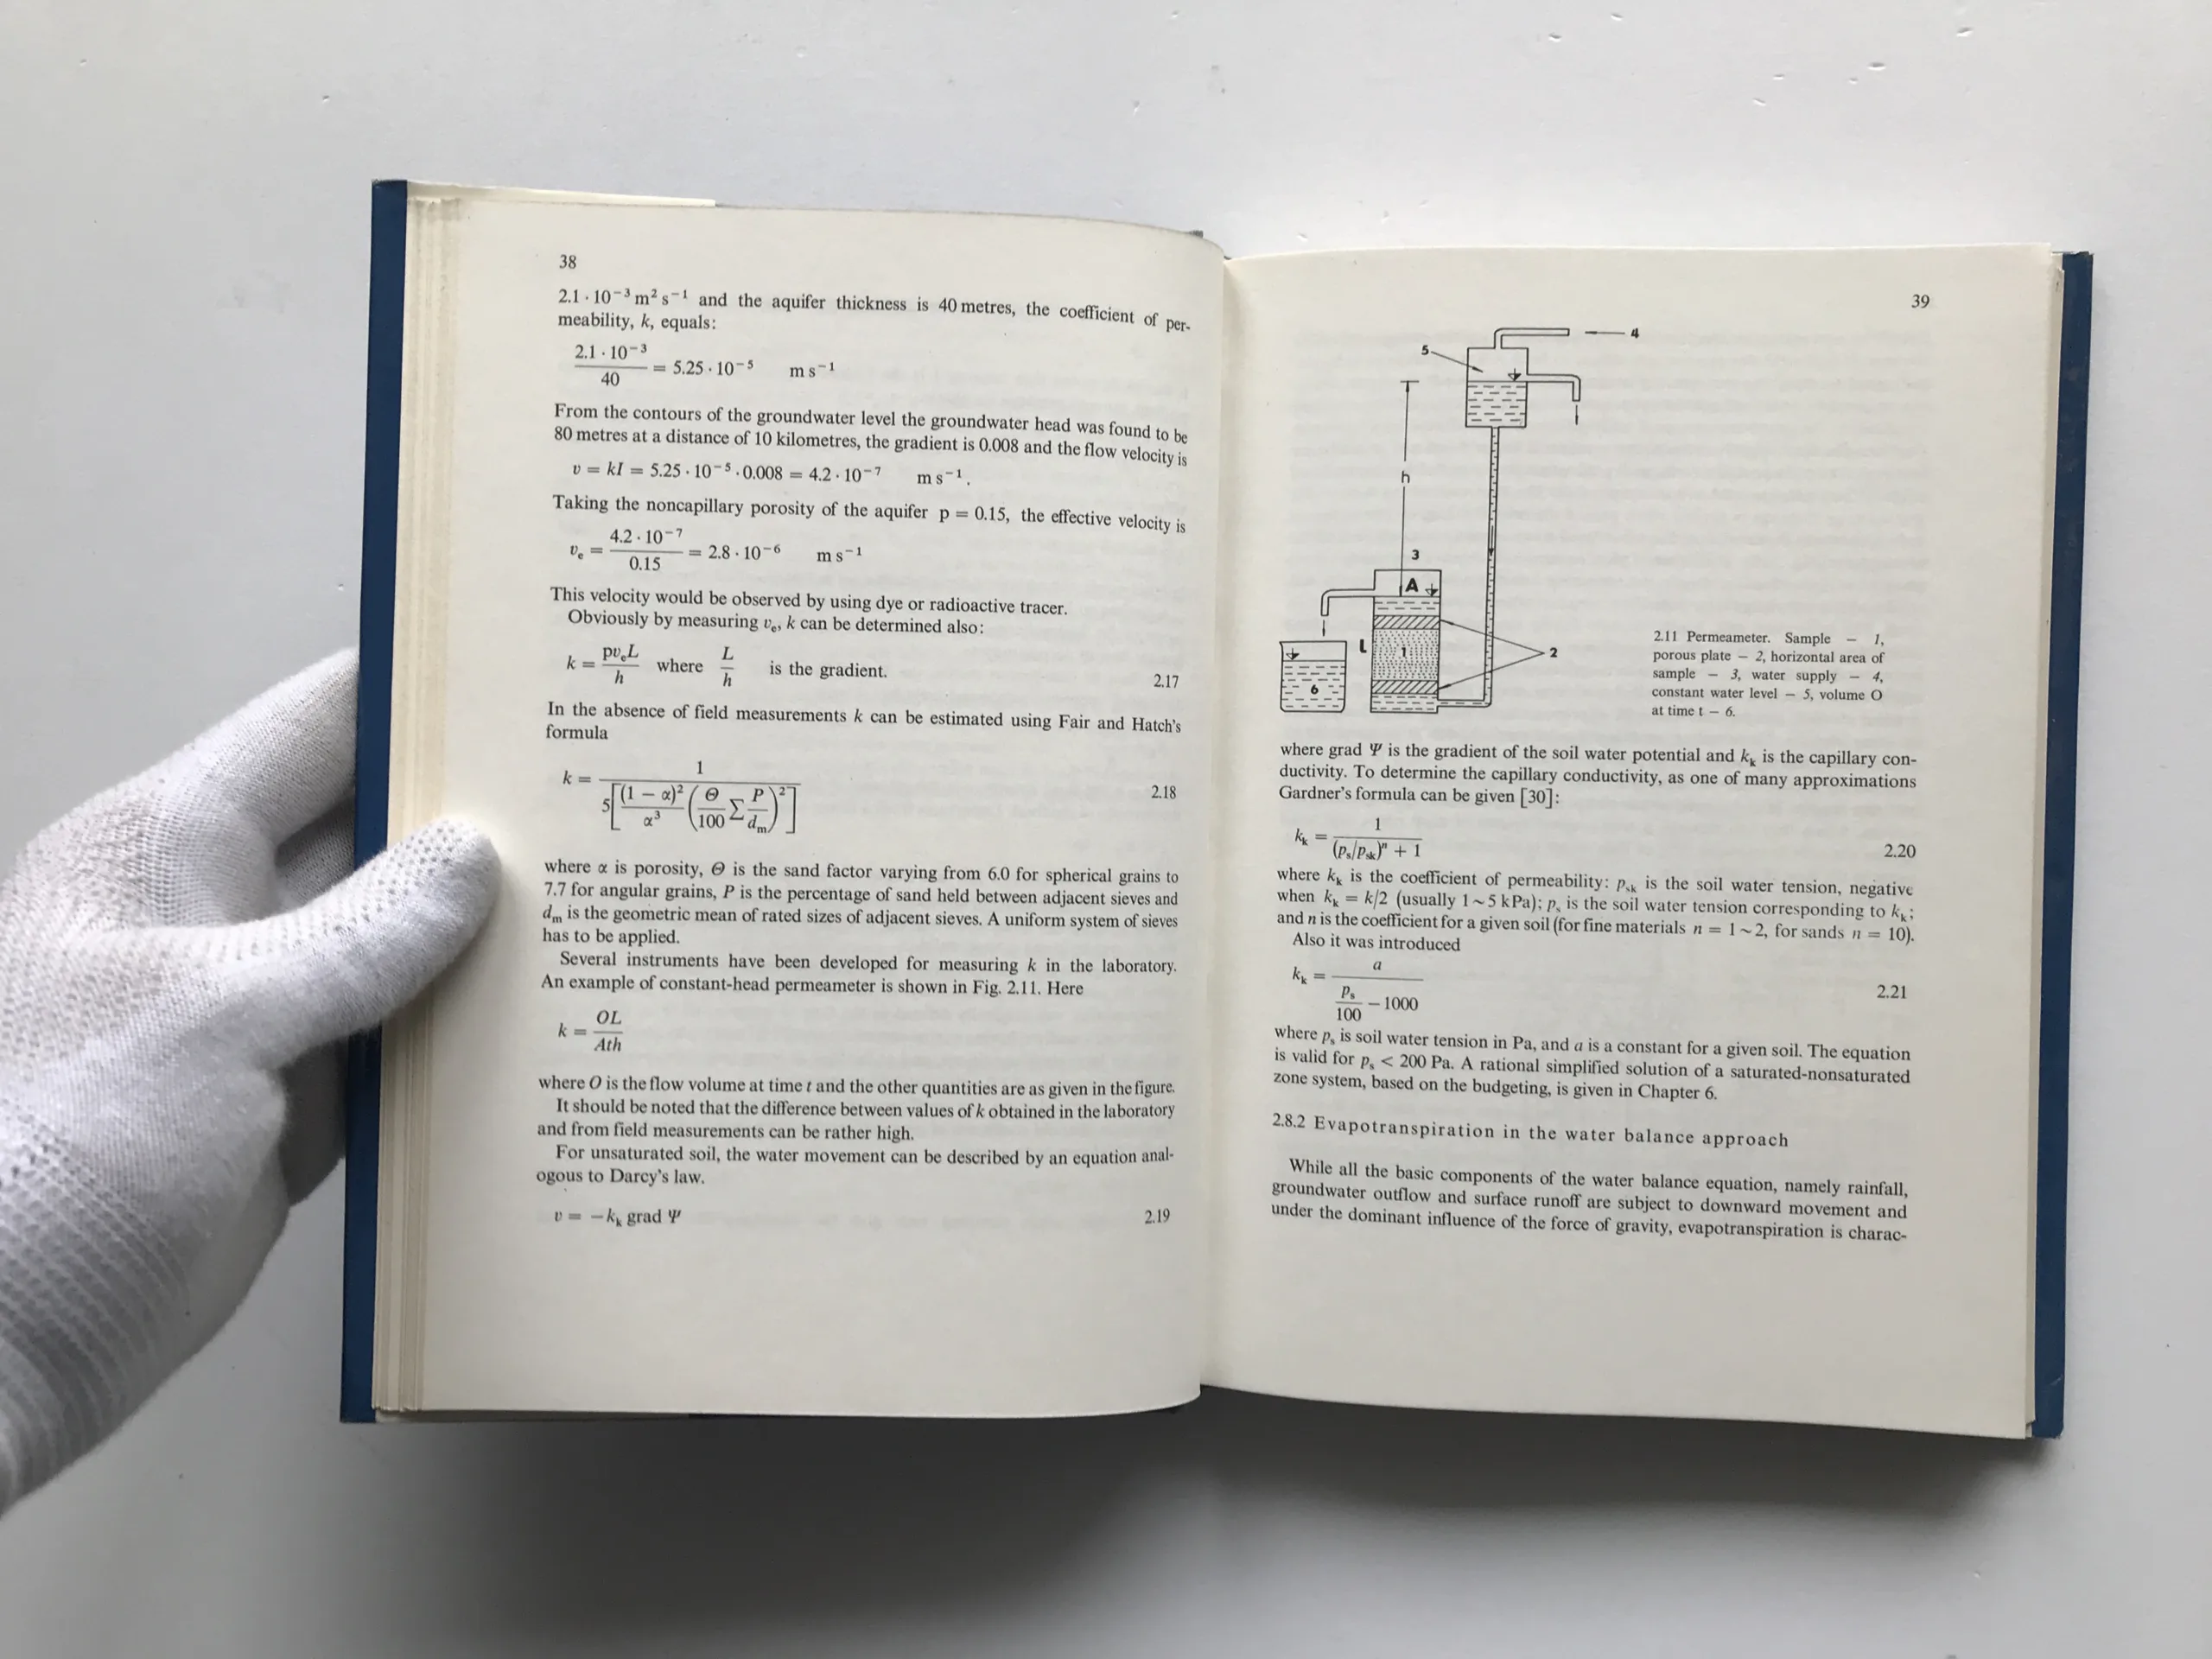 38
2.1 · 10⁻³ m² s⁻¹ and the aquifer thickness is 40 metres, the coefficient of per-
meability, k, equals:
2.1 · 10⁻³
40
= 5.25 · 10⁻⁵ m s⁻¹
From the contours of the groundwater level the groundwater head was found to be
80 metres at a distance of 10 kilometres, the gradient is 0.008 and the flow velocity is
v = kI = 5.25 · 10⁻⁵ · 0.008 = 4.2 · 10⁻⁷ m s⁻¹.
Taking the noncapillary porosity of the aquifer p = 0.15, the effective velocity is
vₑ = 4.2 · 10⁻⁷ / 0.15 = 2.8 · 10⁻⁶ m s⁻¹
This velocity would be observed by using dye or radioactive tracer.
Obviously by measuring vₑ, k can be determined also:
k = pvₑL / h where L / h is the gradient. 2.17
In the absence of field measurements k can be estimated using Fair and Hatch's
formula
k = 1 / 5[(1 − α)² / α³ (Θ / 100 Σ P / dₘ)²] 2.18
where α is porosity, Θ is the sand factor varying from 6.0 for spherical grains to
7.7 for angular grains, P is the percentage of sand held between adjacent sieves and
dₘ is the geometric mean of rated sizes of adjacent sieves. A uniform system of sieves
has to be applied.
Several instruments have been developed for measuring k in the laboratory.
An example of constant-head permeameter is shown in Fig. 2.11. Here
k = OL / Ath
where O is the flow volume at time t and the other quantities are as given in the figure.
It should be noted that the difference between values of k obtained in the laboratory
and from field measurements can be rather high.
For unsaturated soil, the water movement can be described by an equation anal-
ogous to Darcy's law.
v = −kₖ grad Ψ 2.19
39
4
5
h
3
A
L
1
2
6
2.11 Permeameter. Sample — 1,
porous plate — 2, horizontal area of
sample — 3, water supply — 4,
constant water level — 5, volume O
at time t — 6.
where grad Ψ is the gradient of the soil water potential and kₖ is the capillary con-
ductivity. To determine the capillary conductivity, as one of many approximations
Gardner's formula can be given [30]:
kₖ = 1 / (pₛ/pₛₖ)ⁿ + 1 2.20
where kₖ is the coefficient of permeability: pₛₖ is the soil water tension, negative
when kₖ = k/2 (usually 1~5 kPa); pₛ is the soil water tension corresponding to kₖ;
and n is the coefficient for a given soil (for fine materials n = 1~2, for sands n = 10).
Also it was introduced
kₖ = a / pₛ / 100 − 1000 2.21
where pₛ is soil water tension in Pa, and a is a constant for a given soil. The equation
is valid for pₛ < 200 Pa. A rational simplified solution of a saturated-nonsaturated
zone system, based on the budgeting, is given in Chapter 6.
2.8.2 Evapotranspiration in the water balance approach
While all the basic components of the water balance equation, namely rainfall,
groundwater outflow and surface runoff are subject to downward movement and
under the dominant influence of the force of gravity, evapotranspiration is charac-